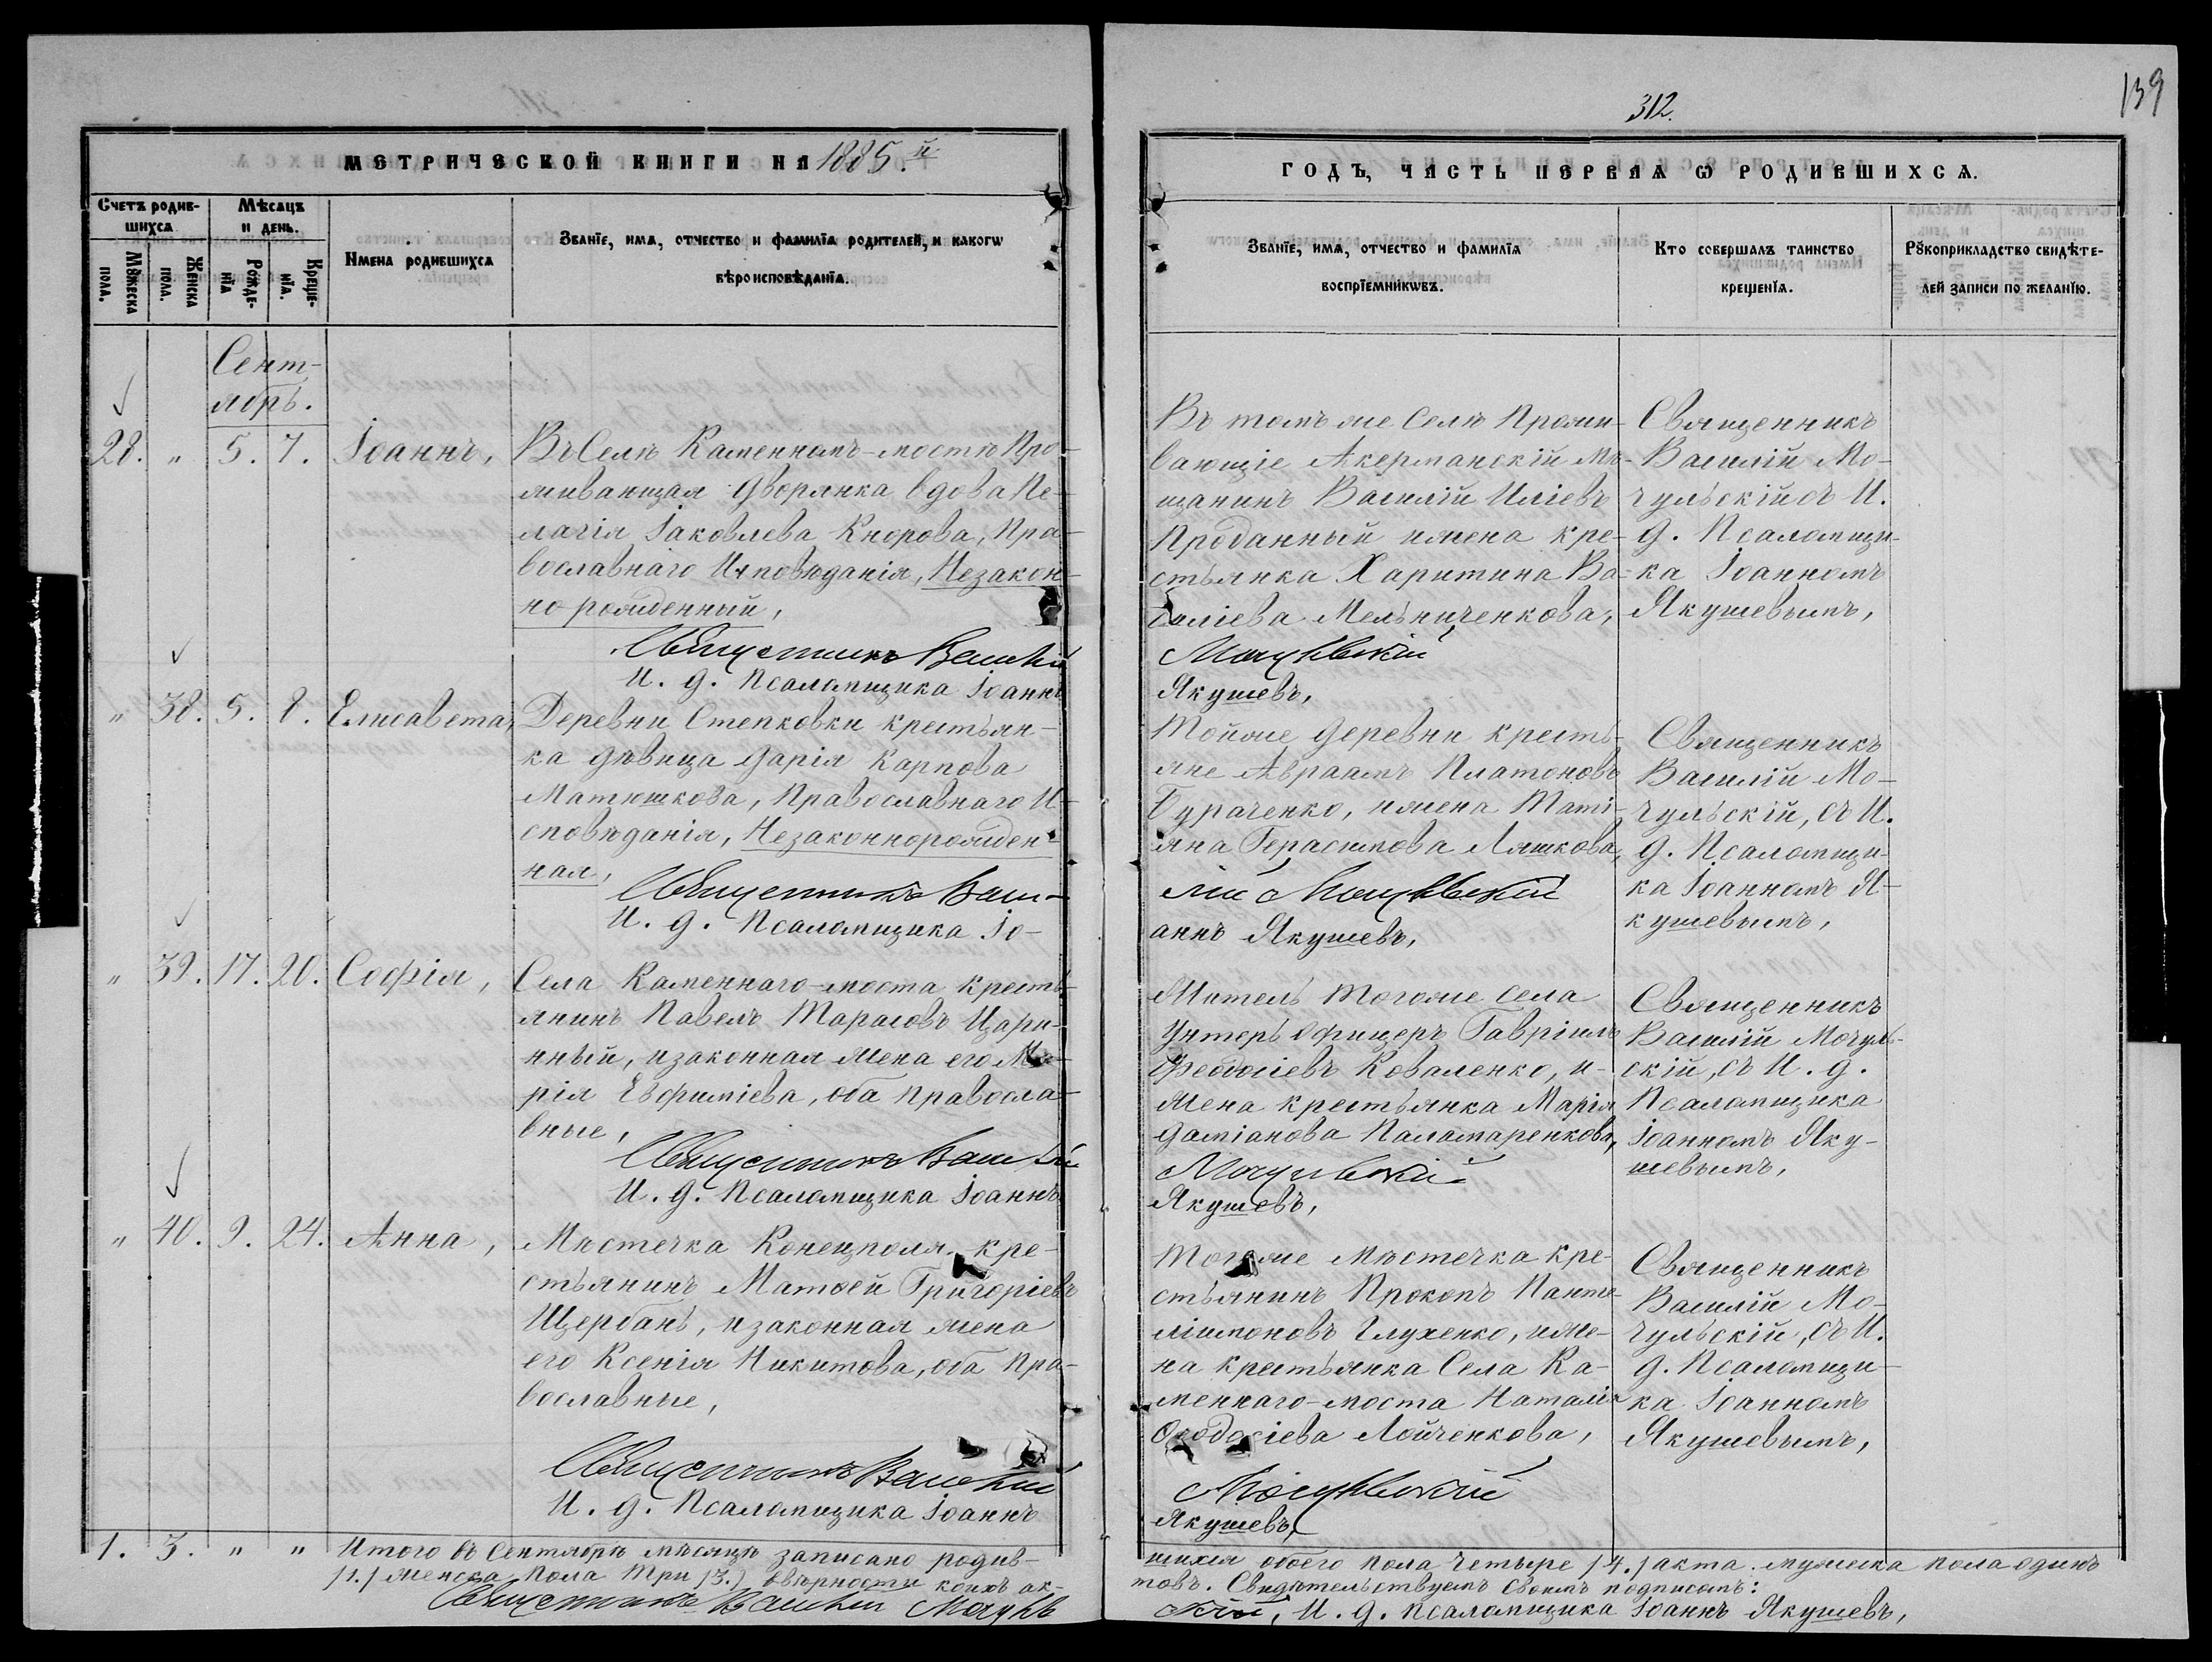 139
312.
МЕТРИЧЕСКОЙ КНИГИ НА 1885.й
ГОДЪ, ЧАСТЬ ПЕРВАЯ Ѡ РОДИВШИХСѦ.
Счетъ родив-
шихсѧ
Мѣсѧцъ
и день.
Мꙋжеска
пола.
Женска
пола.
Рожде-
нїѧ
Креще-
нїѧ.
Имена родившихсѧ
Званїе, имѧ, отчество и фамилїѧ родителей, и какогѡ
вѣроисповѣданїѧ.
Званїе, имѧ, отчество и фамилїѧ
воспрїемникѡвъ.
Кто совершалъ таинство
крещенїѧ.
Рꙋкоприкладство свидѣте-
лей записи по желанїю.
Сент-
ябрь.
28. " 5. 7. Іоаннъ,
Въ Селѣ Каменномъ-мостѣ Про-
живающая дворянка вдова Пе-
лагія Іаковлева Кнорова, Пра-
вославнаго Исповѣданія, Незакон-
но рожденный,
Священникъ Василій
И. д. Псаломщика Іоаннъ
Въ томъ же Селѣ Прожи-
вающіе Акерманскій Мѣ-
щанинъ Василій Иліевъ
Проданный и жена кре-
стьянка Харитина Ва-
силіева Мельниченкова,
Мочульскій
Якушевъ,
Священникъ
Василій Мо-
чульскій съ И.
д. Псаломщи-
ка Іоанномъ
Якушевымъ,
" 38. 5. 8. Елисавета,
Деревни Степковки крестьян-
ка дѣвица Дарія Карпова
Матюшкова, Православнаго И-
сповѣданія, Незаконнорожден-
ная,
Священникъ Васи-
И. д. Псаломщика Іо-
Тойже деревни кресть-
яне Авраамъ Платоновъ
Бураченко, и жена Таті-
яна Герасимова Ляшкова,
лій Мочульскій
аннъ Якушевъ,
Священникъ
Василій Мо-
чульскій, съ И.
д. Псаломщи-
ка Іоанномъ Я-
кушевымъ,
" 39. 17. 20. Софія,
Села Каменнаго-моста кресть-
янинъ Павелъ Тарасовъ Цари-
нный, и законная жена его Ма-
рія Евфиміева, оба правосла-
вные,
Священникъ Василій
И. д. Псаломщика Іоаннъ
Житель тогоже села
Унтеръ офицеръ Гавріилъ
Феодосіевъ Коваленко, и-
жена крестьянка Марія
Даміанова Паламаренкова,
Мочульскій
Якушевъ,
Священникъ
Василій Мочуль-
скій, съ И. д.
Псаломщика
Іоанномъ Яку-
шевымъ,
" 40. 9. 24. Анна,
Мѣстечка Конецполя кре-
стьянинъ Матѳей Григоріевъ
Щербанъ, и законная жена
его Ксенія Никитова, оба Пра-
вославные,
Священникъ Василій
И. д. Псаломщика Іоаннъ
Тогоже Мѣстечка кре-
стьянинъ Прокопъ Панте-
лиімоновъ Глухенко, и же-
на крестьянка Села Ка-
меннаго-моста Наталія
Ѳеодосіева Лойченкова,
Мочульскій
Якушевъ,
Священникъ
Василій Мо-
чульскій, съ И.
д. Псаломщи-
ка Іоанномъ
Якушевымъ,
1. 3. " " Итого въ Сентябрѣ мѣсяцѣ записано родив-
шихся обоего пола четыре /4./ акта. мужеска пола одинъ
/1./ женска пола три /3./ вѣрности коихъ ак-
товъ. Свидѣтельствуемъ своимъ подписомъ:
Священникъ Василій Мочуль
скій, И. д. Псаломщика Іоаннъ Якушевъ,